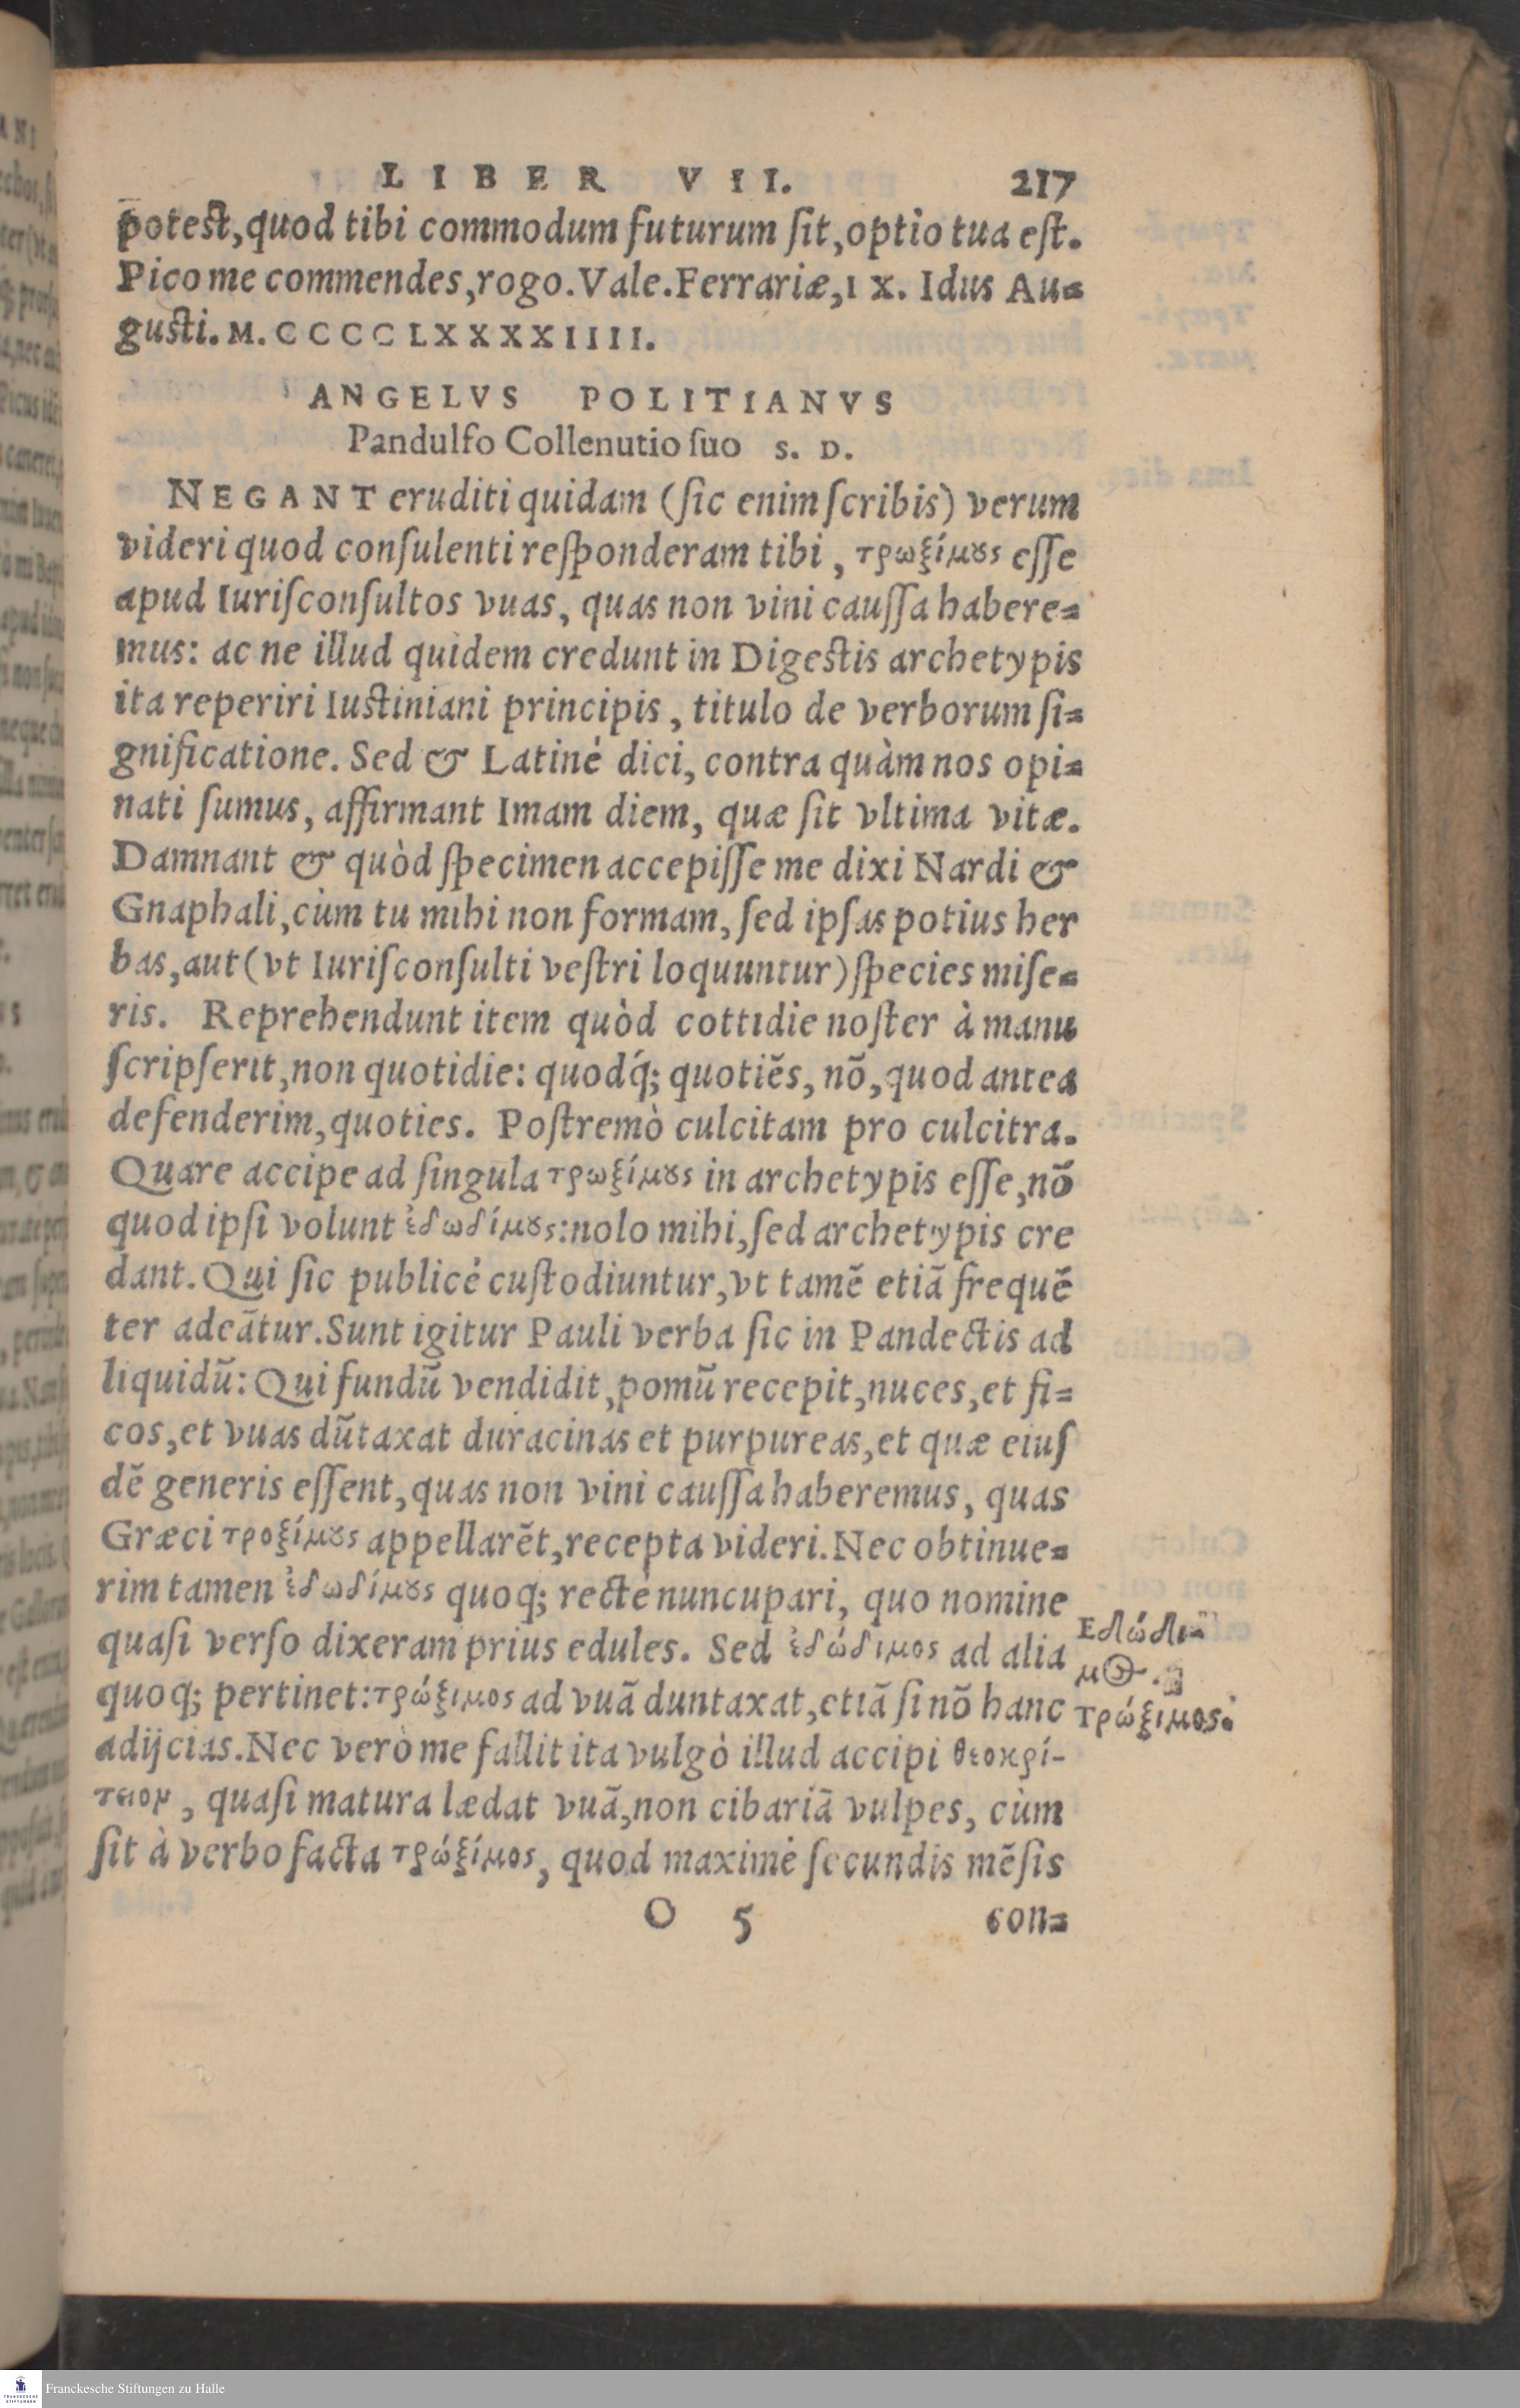 LIBER VII. 217
potest, quod tibi commodum futurum ſit, optio tua eſt.
Pico me commendes, rogo. Vale. Ferrariæ, IX. Idus Au=
gusti. M. CCCCLXXXXIIII.
ANGELVS POLITIANVS
Pandulfo Collenutio ſuo S. D.
NEGANT eruditi quidam (ſic enim ſcribis) verum
videri quod conſulenti reſponderam tibi, τρωξίμȣς eſſe
apud Iuriſconſultos vuas, quas non vini cauſſa habere=
mus: ac ne illud quidem credunt in Digestis archetypis
ita reperiri Iustiniani principis, titulo de verborum ſi=
gnificatione. Sed & Latiné dici, contra quàm nos opi=
nati ſumus, affirmant Imam diem, quæ ſit vltima vitæ.
Damnant & quòd ſpecimen accepiſſe me dixi Nardi &
Gnaphali, cùm tu mihi non formam, ſed ipſas potius her
bas, aut (vt Iuriſconſulti veſtri loquuntur) ſpecies miſe=
ris. Reprehendunt item quòd cottidie noſter à manu
ſcripſerit, non quotidie: quodq́; quotiẽs, nõ, quod antea
defenderim, quoties. Poſtremò culcitam pro culcitra.
Quare accipe ad ſingula τρωξίμȣς in archetypis eſſe, nõ
quod ipſi volunt ἐδωδίμȣς: nolo mihi, ſed archetypis cre
dant. Qui ſic publicé cuſtodiuntur, vt tamẽ etiã frequẽ
ter adeãtur. Sunt igitur Pauli verba ſic in Pandectis ad
liquidũ: Qui fundũ vendidit, pomũ recepit, nuces, et fi=
cos, et vuas dũtaxat duracinas et purpureas, et quæ eiuſ
dẽ generis eſſent, quas non vini cauſſa haberemus, quas
Græci τροξίμȣς appellarẽt, recepta videri. Nec obtinue=
rim tamen ἐδωδίμȣς quoq; recté nuncupari, quo nomine
quaſi verſo dixeram prius edules. Sed ἐδώδιμος ad alia
quoq; pertinet: τρώξιμος ad vuã duntaxat, etiã ſi nõ hanc
adijcias. Nec verò me fallit ita vulgò illud accipi θεοκρί-
τειον, quaſi matura lædat vuã, non cibariã vulpes, cùm
ſit à verbo facta τρώξίμος, quod maximé ſecundis mẽſis
Εδώδι=
μΘ.
τρώξιμος.
O 5 con=
Franckesche Stiftungen zu Halle